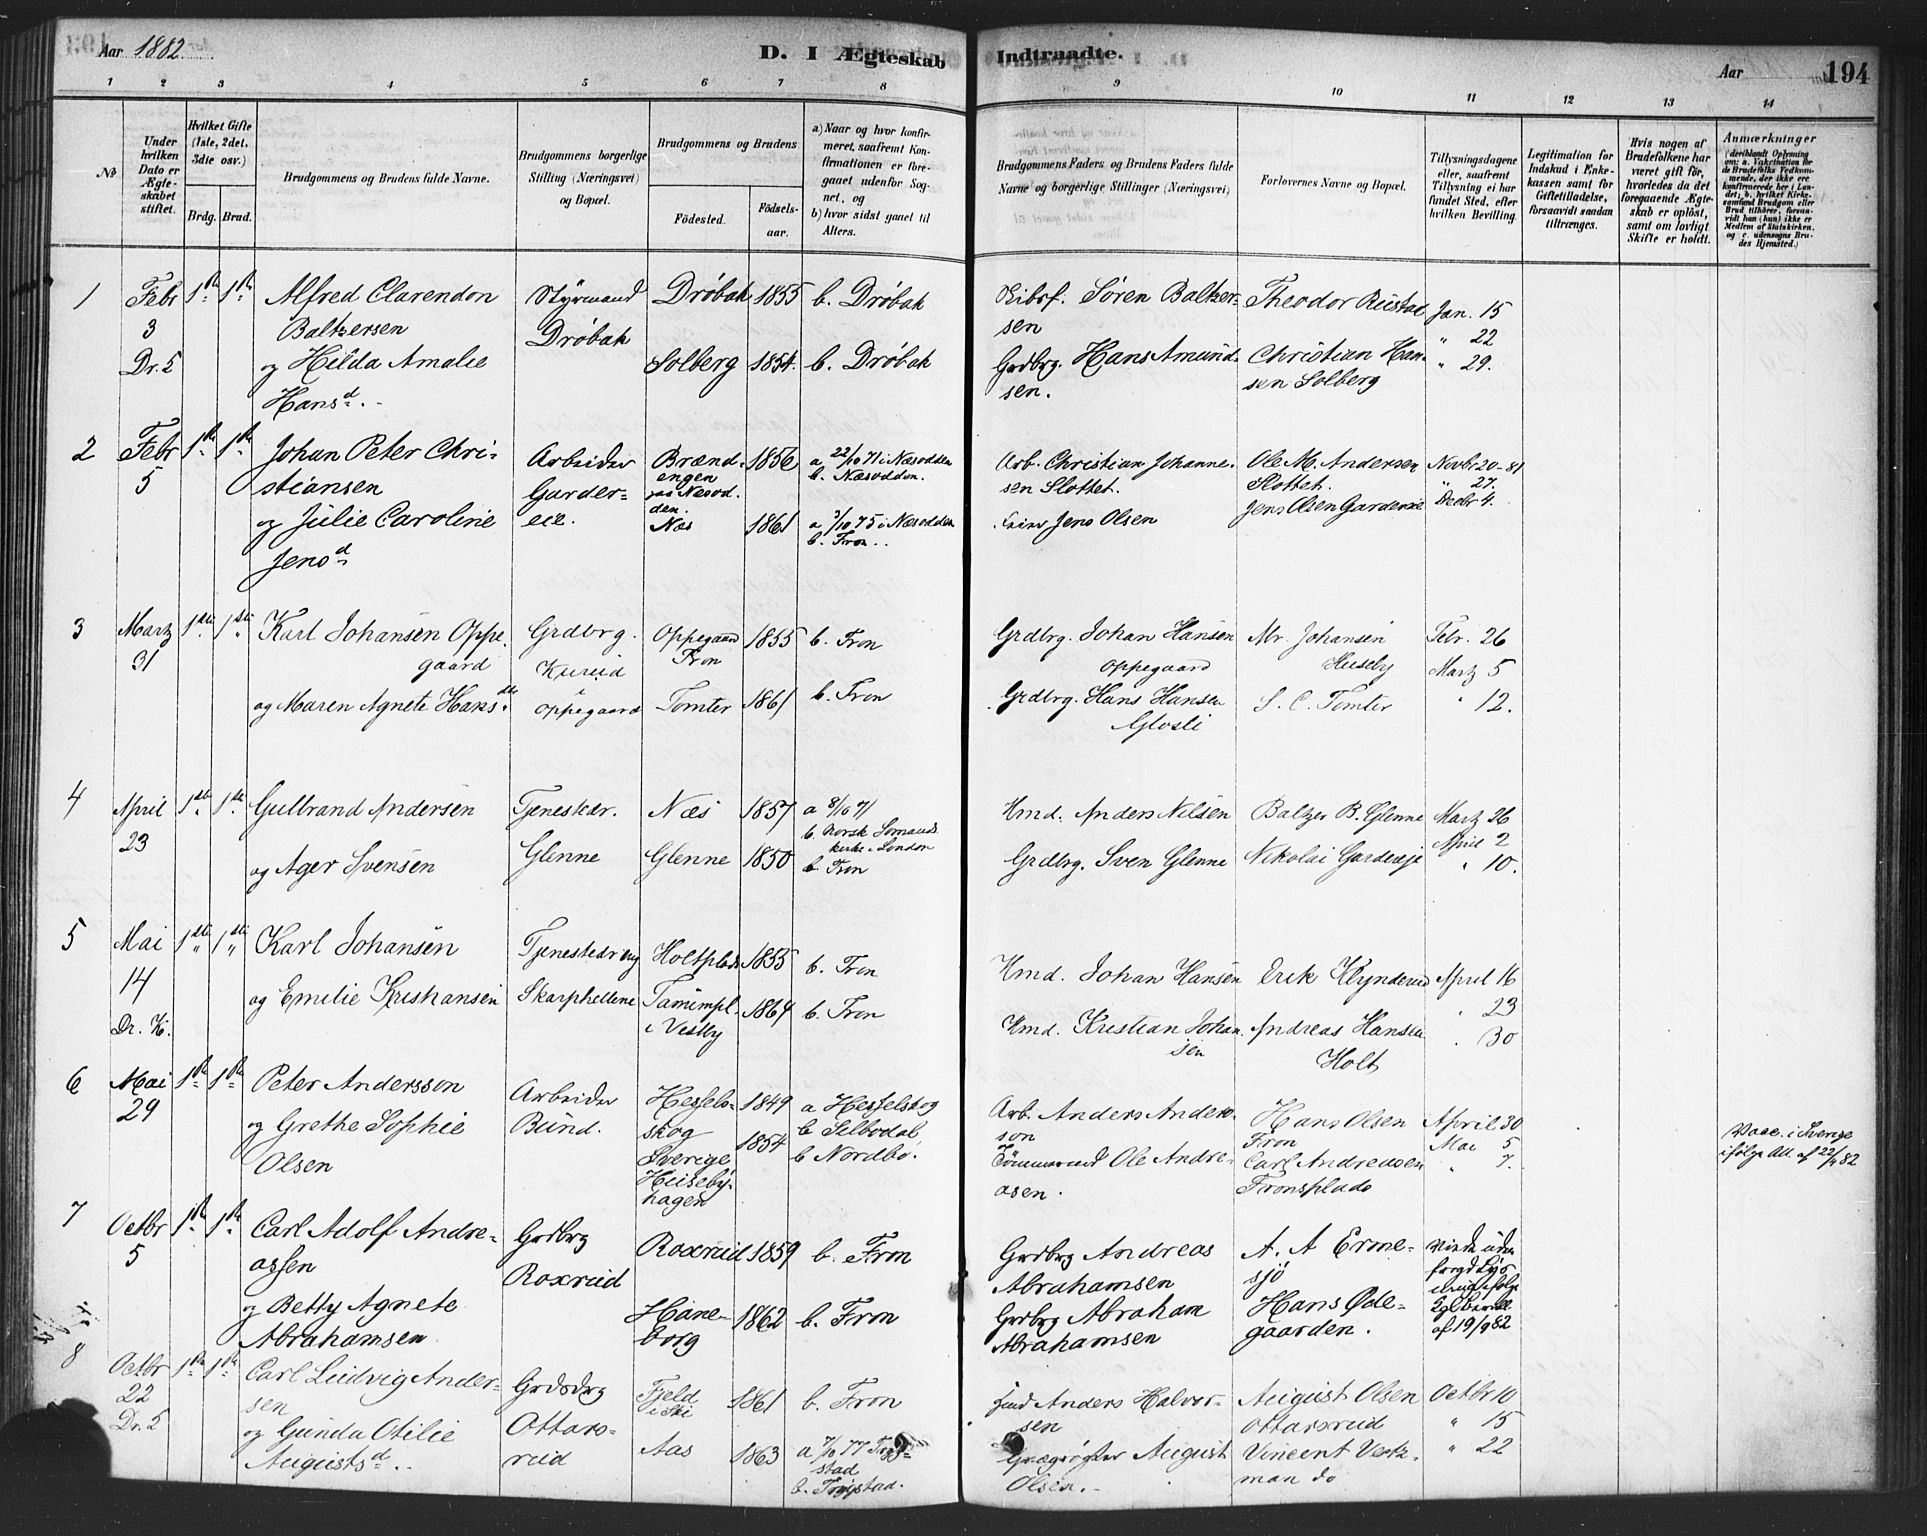 Aar 1882.
D. I Ægteskab Indtraadte.
Aar 194
1 2 3 4 5 6 7 8 9 10 11 12 13 14
No
Under
hvilken
Dato er
Ægte-
skabet
stiftet.
Hvilket Gifte
(1ste, 2det,
3die osv.)
Brdg. Brud.
Brudgommens og Brudens fulde Navne.
Brudgommens borgerlige
Stilling (Næringsvei)
og Bopæl.
Brudgommens og Brudens
Fødested.
Fødsels-
aar.
a) Naar og hvor konfir-
meret, saafremt Kon-
firmationen er fore-
gaaet udenfor Sog-
net, og
b) hvor sidst gaaet til
Alters.
Brudgommens Faders og Brudens Faders fulde
Navne og borgerlige Stillinger (Næringsvei)
Forlovernes Navne og Bopæl.
Tillysningsdagene
eller, saafremt
Tillysning ei har
fundet Sted, efter
hvilken Bevilling.
Legitimation for
Indskud i Enke-
kassen samt for
Giftetilladelse,
forsaavidt saadan
tiltrænges.
Hvis nogen af
Brudefolkene har
været gift før,
hvorledes da det
foregaaende Ægte-
skab er opløst,
samt om lovligt
Skifte er holdt.
Anmærkninger
(deriblandt Oplysning
om: a. Vakcination for
de Brudefolks Vedkom-
mende, der ikke ere
konfirmerede her i Lan-
det; b. hvilket Kirke-
samfund Brudgom eller
Brud tilhører, forsaa-
vidt han (hun) ikke er
Medlem af Statskirken,
og c. udensogns Bru-
des Hjemsted.)
1
Febr
3
Dr. 5
1ste 1ste
Alfred Clarendon
Baltzersen
og Hilda Amalie
Hansd.
Styrmand
Drøbak
Drøbak 1855 b. Drøbak
Solberg 1854. b. Drøbak
Søren Baltzer-
sen
Grdbrg. Hans Amund-
sen.
Theodor Rustad
Christian Han-
sen Solberg
Jan. 15
" 22
" 29.
2
Febr
5
1ste 1ste
Johan Peter Chri-
stiansen
og Julie Caroline
Jensd
Arbeider
Garder-
eie.
Brænd-
engen
paa Næsod-
den.
Næs
1856
1861
a 22/10 71 i Næsodden
b. Næsodden.
a 3/10 75 i Næsodden
b. Fron.
Arb. Christian Johanne-
sen Slottet.
Jens Olsen
Ole M. Andersen
Slottet.
Jens Olsen Gardereie
Novbr 20-81
" 27.
Decbr 4.
3
Martz
31
1ste 1ste
Karl Johansen Oppe-
gaard
og Maren Agnete Hansdtr
Grdbrg.
Kurud
i
Oppegaard
Oppegaard
Fron
Tomter
1855 b. Fron
1861 b. Fron
Grdbrg. Johan Hansen
Oppegaard
Grdbrg. Hans Hansen
Glosli
Mr. Johansen
Huseby
S. C. Tomter
Febr. 26
Martz 5
" 12.
4
April
23
1ste 1ste
Gulbrand Andersen
og Ager Svensen
Tjenestkar.
Glenne
Næs 1857
Glenne 1850
a 8/10 71
b. Norsk Sømands
kirke i London
b. Fron
Hmd. Anders Nilsen
Grdbrg. Sven Glenne
Baltzer B. Glenne
Nikolai Gardereje
Martz 26
April 2
" 10.
5
Mai
14
Dr. K.
1ste 1ste
Karl Johansen
og Emilie Kristiansen
Tjenestedreng
Skarphellene
Holtplads 1855 b. Fron
Tamimpl.
i Vestby
1864 b. Fron
Hmd. Johan Hansen
Hmd. Kristian Johan-
sen
Erik Klynderud
Andreas Hansen
Holt
April 16
" 23
" 30
6
Mai
29
1ste 1ste
Peter Andersson
og Grethe Sophie
Olsen
Arbeider
Bund.
Hessels-
skog
Sverige
Huseby-
hagen
1849
1854
a Hesselskog
b Silbodal
b Nordbo.
Arb. Anders Anders-
son
Tømmermd Ole Andre-
asen.
Hans Olsen
Fron
Carl Andreasen
Fronsplads
April 30
Mai 5
" 7.
Vacc. i Sverige
ifølge Att. af 22/4 82
7
Octbr
5
1ste 1ste
Carl Adolf Andre-
assen
og Betty Agnete
Abrahamsen
Grdbrg
Roxrud
Roxrud 1859 b. Fron
Hane-
borg
1862 b. Fron
Grdbrg Andreas
Abrahamsen
Grdbrg Abraham
Abrahamsen
A. A Erme-
sjø
Hans Øde-
gaarden.
Viede uden
foregd Lys-
ning ifølge
Kgl Bevill.
af 19/9 82
8
Octbr
22
Dr. 5
1ste 1ste
Carl Ludvig Ander-
sen
og Gunda Otilie
Augustsd.
Grdbrg
Ottars-
rud
Fjeld
i Ski
Aas
1861 b. Fron
1863
a 7/10 77 Trøg-
stad
b. Trøgstad.
Anders Halvor-
sen
Grøgrøfter August
Olsen.
August Olsen
Ottarsrud
Vincent Vertz-
man do
Octbr 10
" 15
" 22